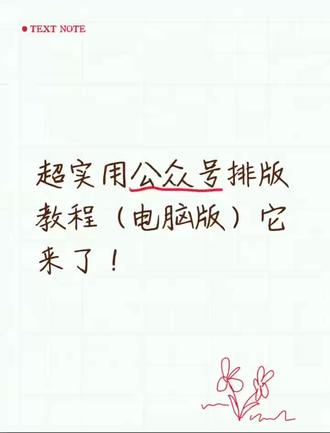 TEXT NOTE
超实用公众号排版
教程（电脑版）它
来了！